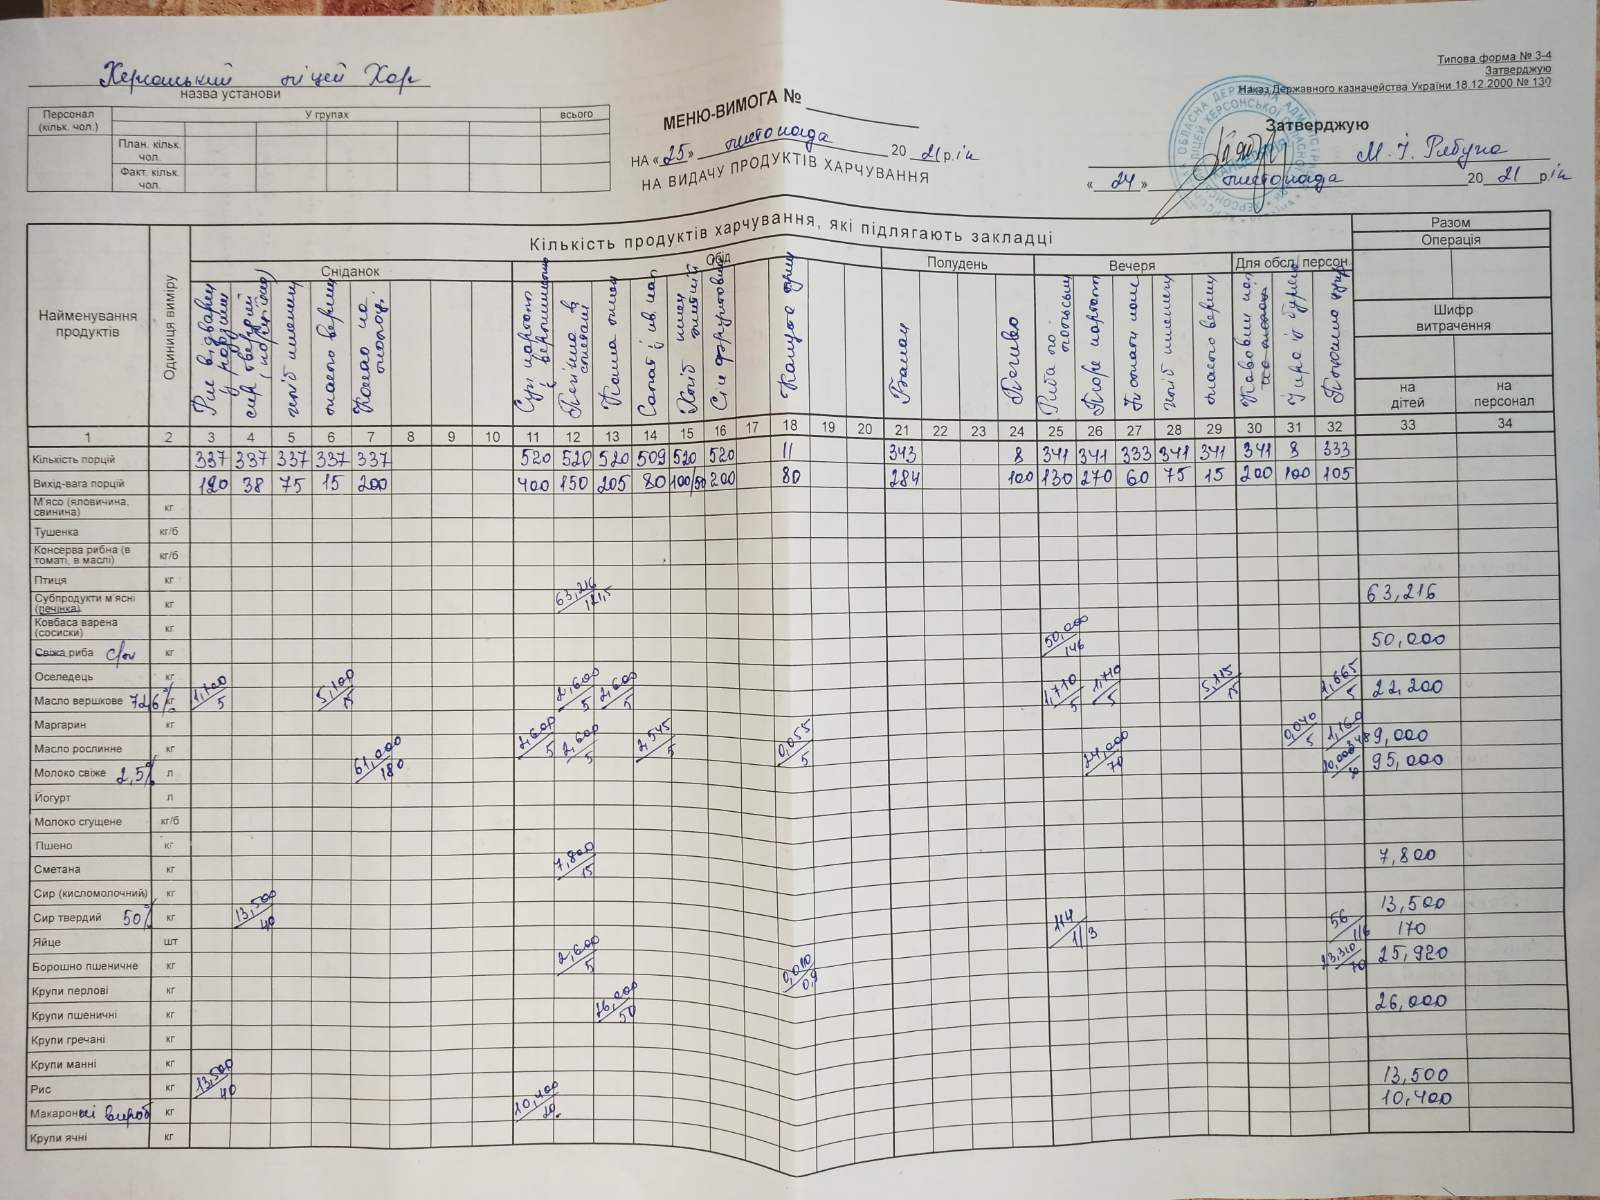 Типова форма № З-4
Затверджую
Наказ Державного казначейства України 18.12.2000 № 130
Херсонський ліцей Хор
назва установи
Персонал (кільк. чол.) У групах всього
План. кільк. чол.
Факт. кільк. чол.
МЕНЮ-ВИМОГА №
НА «25» листопада 20 21 рік
НА ВИДАЧУ ПРОДУКТІВ ХАРЧУВАННЯ
Затверджую
М. І. Рябуха
«24» листопада 20 21 рік
Найменування продуктів Одиниця виміру Кількість продуктів харчування, які підлягають закладці Разом
Операція
Сніданок Обід Полудень Вечеря Для обсл. персон.
Шифр витрачення
на дітей на персонал
сир твердий
хліб пшеничн
масло вершк
Какао на молоці
Суп
Печінка в сметані
Каша пшен
Салат
Хліб
Капуста
Банан
Печиво
Риба по польськи
Пюре картоп
хліб пшеничн
масло вершк
1 2 3 4 5 6 7 8 9 10 11 12 13 14 15 16 17 18 19 20 21 22 23 24 25 26 27 28 29 30 31 32 33 34
Кількість порцій 337 337 337 337 337 520 520 520 509 520 520 11 343 8 341 341 333 341 341 341 8 333
Вихід-вага порцій 120 38 75 15 200 400 150 205 80 100/50 200 80 284 100 130 270 60 75 15 200 100 105
М'ясо (яловичина, свинина) кг
Тушенка кг/б
Консерва рибна (в томаті, в маслі) кг/б
Птиця кг
Субпродукти м'ясні (печінка) кг 63,216/121,5 63,216
Ковбаса варена (сосиски) кг
Свіжа риба с/м кг 50,000/146 50,000
Оселедець кг
Масло вершкове 72,6% кг 1,700/5 5,100/15 2,600/5 2,600/5 1,710/5 1,710/5 5,115/15 1,665/5 22,200
Маргарин кг
Масло рослинне кг 2,600/5 2,600/5 2,545/5 0,055/5 0,040/5 1,160/3,48 9,000
Молоко свіже 2,5% л 61,000/180 24,000/70 10,000/30 95,000
Йогурт л
Молоко сгущене кг/б
Пшено кг
Сметана кг 7,800/15 7,800
Сир (кисломолочний) кг
Сир твердий 50% кг 13,500/40 13,500
Яйце шт 114/1/3 56/1/6 170
Борошно пшеничне кг 2,600/5 0,010/0,9 23,310/70 25,920
Крупи перлові кг
Крупи пшеничні кг 26,000/50 26,000
Крупи гречані кг
Крупи манні кг
Рис кг 13,500/40 13,500
Макаронні вироб кг 10,400/20 10,400
Крупи ячні кг